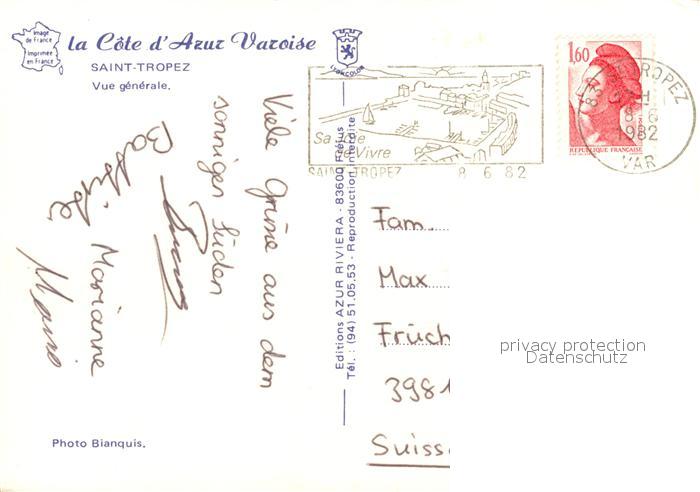 Image
de France
Imprimée
en France
la Côte d'Azur Varoise
SAINT-TROPEZ
Vue générale.
LYONCOLOR
Viele Grüsse aus dem
sonnigen Süden
Marianne
Mario
Photo Bianquis.
Editions AZUR RIVIERA - 83600 Fréjus
Tél. : (94) 51.05.53 - Reproduction interdite
Sa Joie
de Vivre
SAINT-TROPEZ 8 6 82
1,60
REPUBLIQUE FRANÇAISE
TROPEZ
8-6
1982
VAR
Fam.
Max
Früch
3981
Suisse
privacy protection
Datenschutz